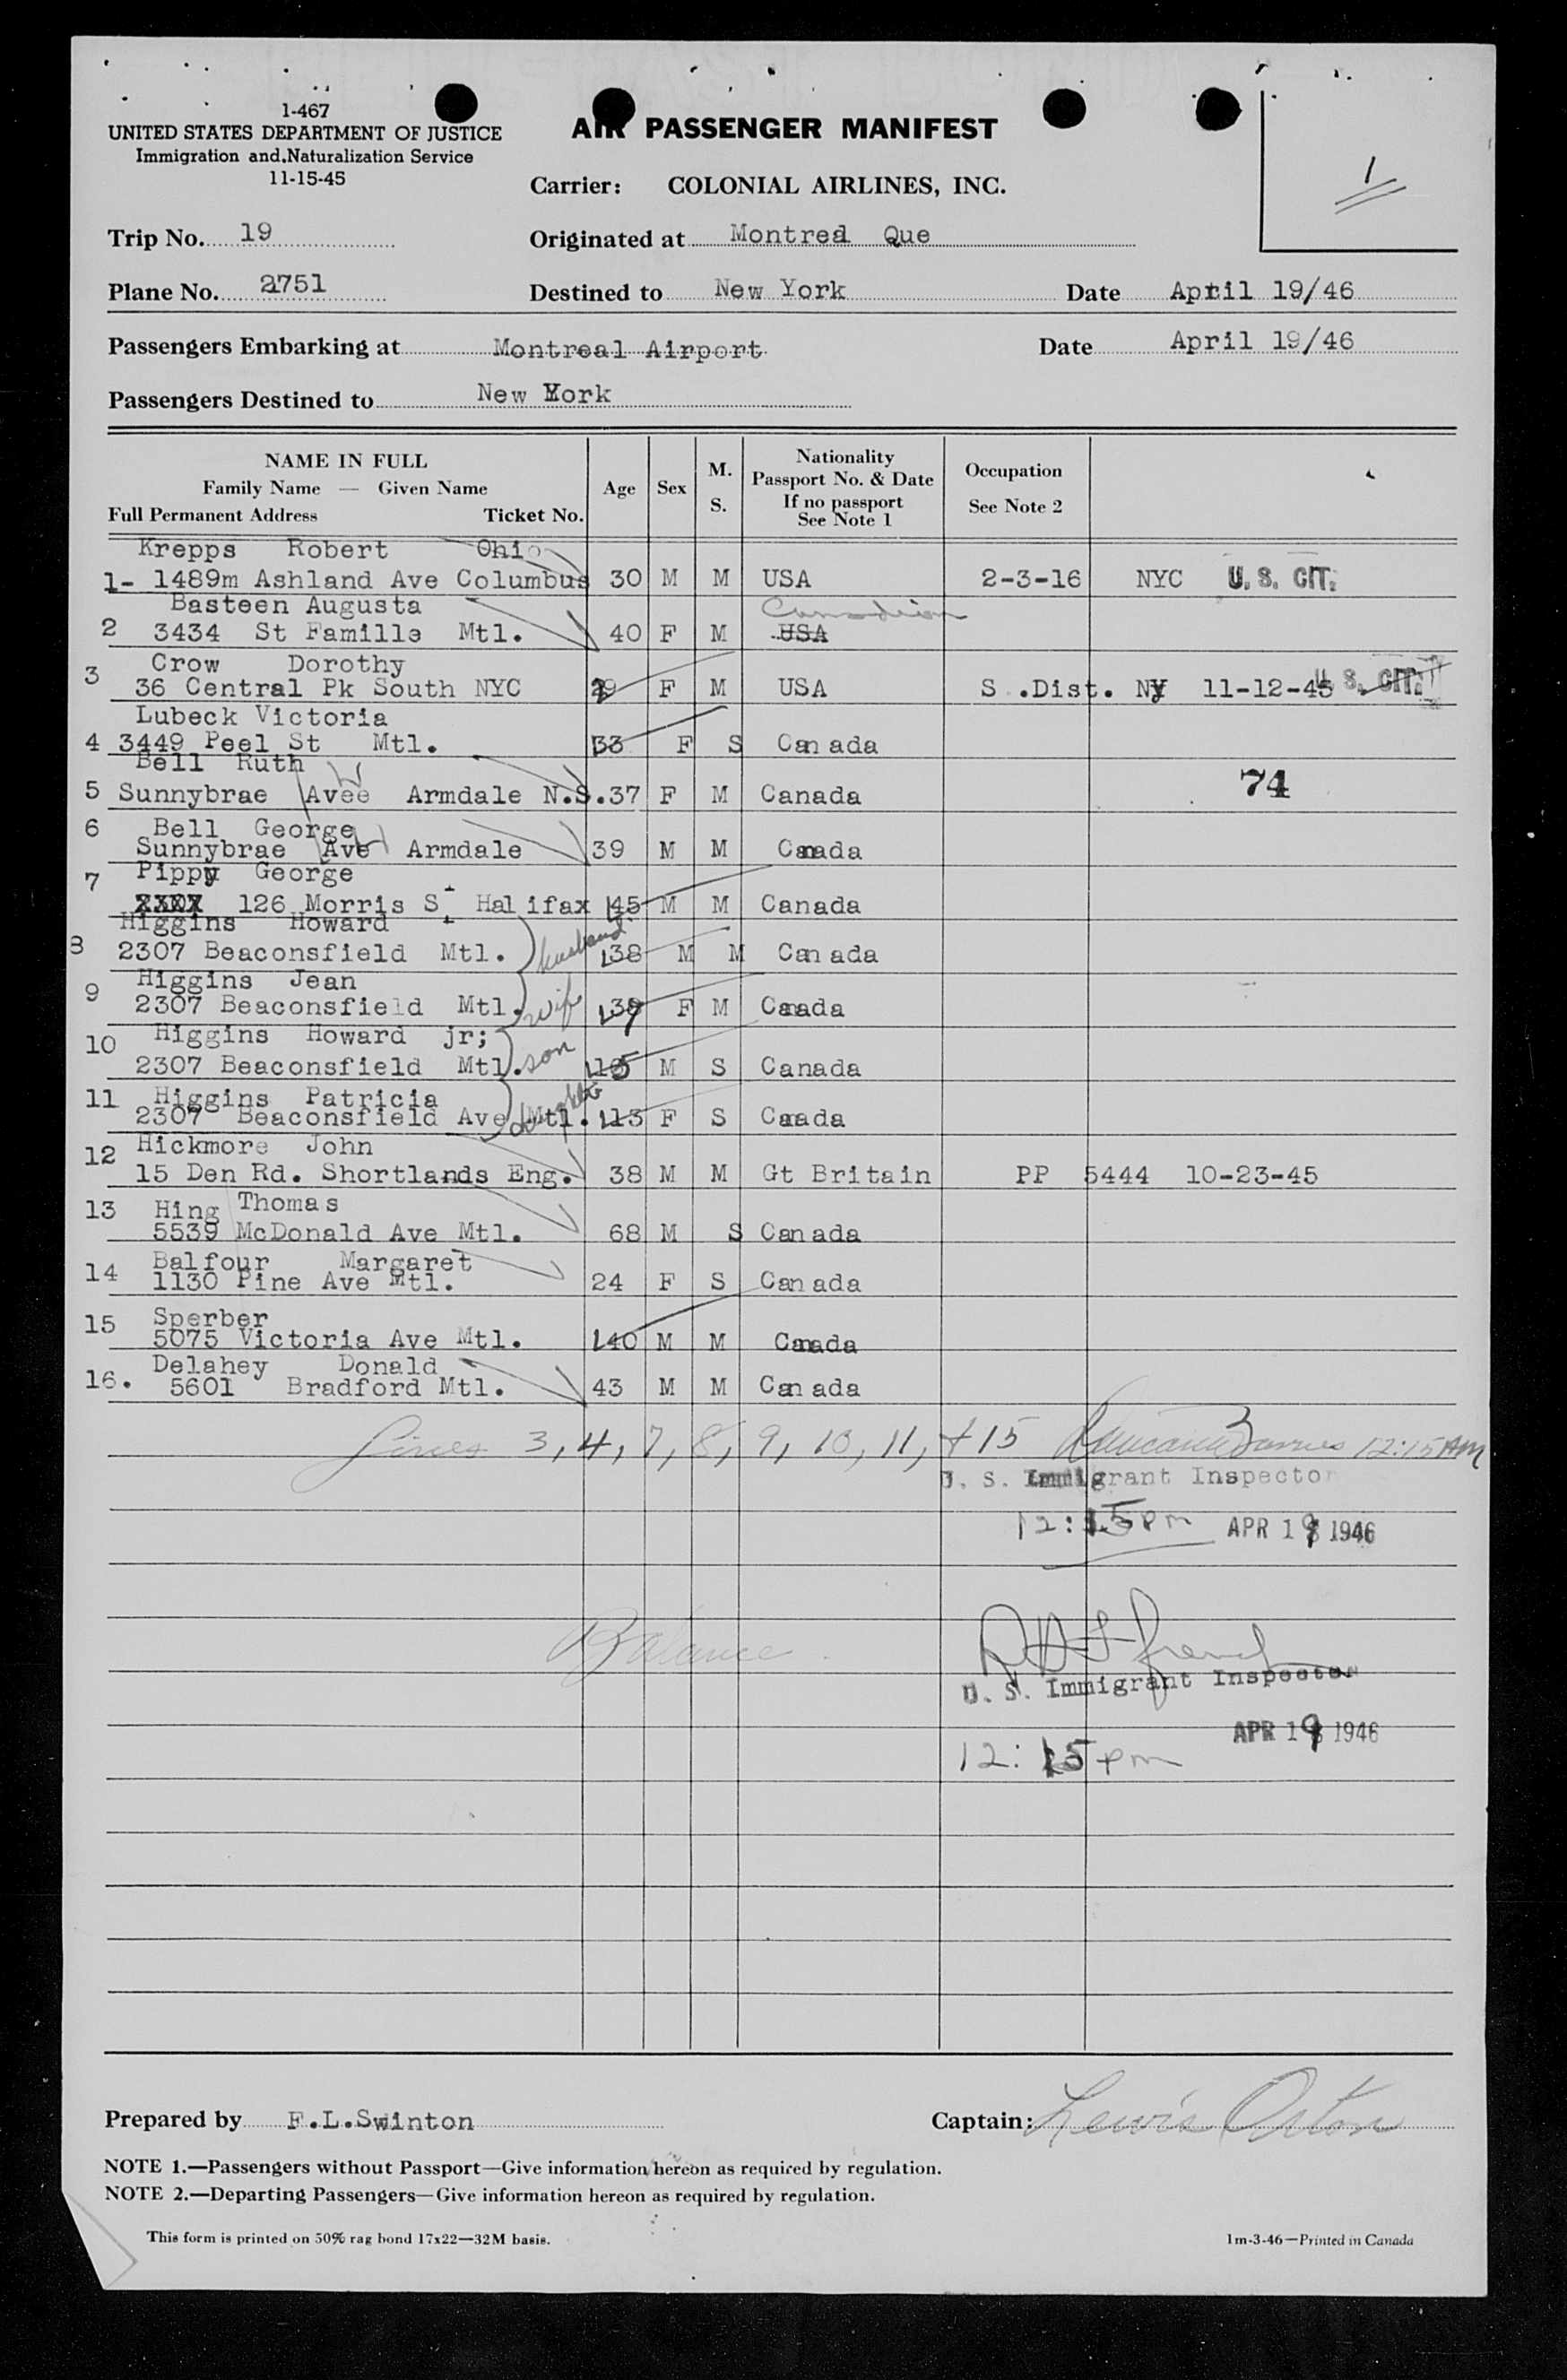 1-467
UNITED STATES DEPARTMENT OF JUSTICE
Immigration and Naturalization Service
11-15-45
AIR PASSENGER MANIFEST
Carrier: COLONIAL AIRLINES, INC.
1
Trip No. 19 Originated at Montreal Que
Plane No. 2751 Destined to New York Date April 19/46
Passengers Embarking at Montreal Airport Date April 19/46
Passengers Destined to New York
NAME IN FULL
Family Name — Given Name
Full Permanent Address Ticket No.
Age Sex M. S.
Nationality
Passport No. & Date
If no passport
See Note 1
Occupation
See Note 2
Krepps Robert Ohio
1- 1489m Ashland Ave Columbus 30 M M USA 2-3-16 NYC U. S. CIT.
Basteen Augusta Canadian
2 3434 St Famille Mtl. 40 F M USA
3 Crow Dorothy
36 Central Pk South NYC 29 F M USA S .Dist. NY 11-12-45 U. S. CIT.
Lubeck Victoria
4 3449 Peel St Mtl. 33 F S Canada
Bell Ruth
5 Sunnybrae Avee Armdale N.S. 37 F M Canada 74
6 Bell George
Sunnybrae Ave Armdale 39 M M Canada
7 Pippy George
126 Morris St Halifax 45 M M Canada
Higgins Howard husband
8 2307 Beaconsfield Mtl. 38 M M Canada
9 Higgins Jean wife
2307 Beaconsfield Mtl. 39 F M Canada
10 Higgins Howard jr; son
2307 Beaconsfield Mtl. 15 M S Canada
11 Higgins Patricia daughter
2307 Beaconsfield Ave Mtl. 13 F S Canada
12 Hickmore John
15 Den Rd. Shortlands Eng. 38 M M Gt Britain PP 5444 10-23-45
13 Hing Thomas
5539 McDonald Ave Mtl. 68 M S Canada
14 Balfour Margaret
1130 Pine Ave Mtl. 24 F S Canada
15 Sperber
5075 Victoria Ave Mtl. 40 M M Canada
16. Delahey Donald
5601 Bradford Mtl. 43 M M Canada
Lines 3, 4, 7, 8, 9, 10, 11, + 15 12:15 AM
U. S. Immigrant Inspector
12:15 pm APR 19 1946
Balance
U. S. Immigrant Inspector
APR 19 1946
12:15 pm
Prepared by F.L.Swinton Captain: Lewis Orton
NOTE 1.—Passengers without Passport—Give information hereon as required by regulation.
NOTE 2.—Departing Passengers—Give information hereon as required by regulation.
This form is printed on 50% rag bond 17x22—32M basis. 1m-3-46—Printed in Canada